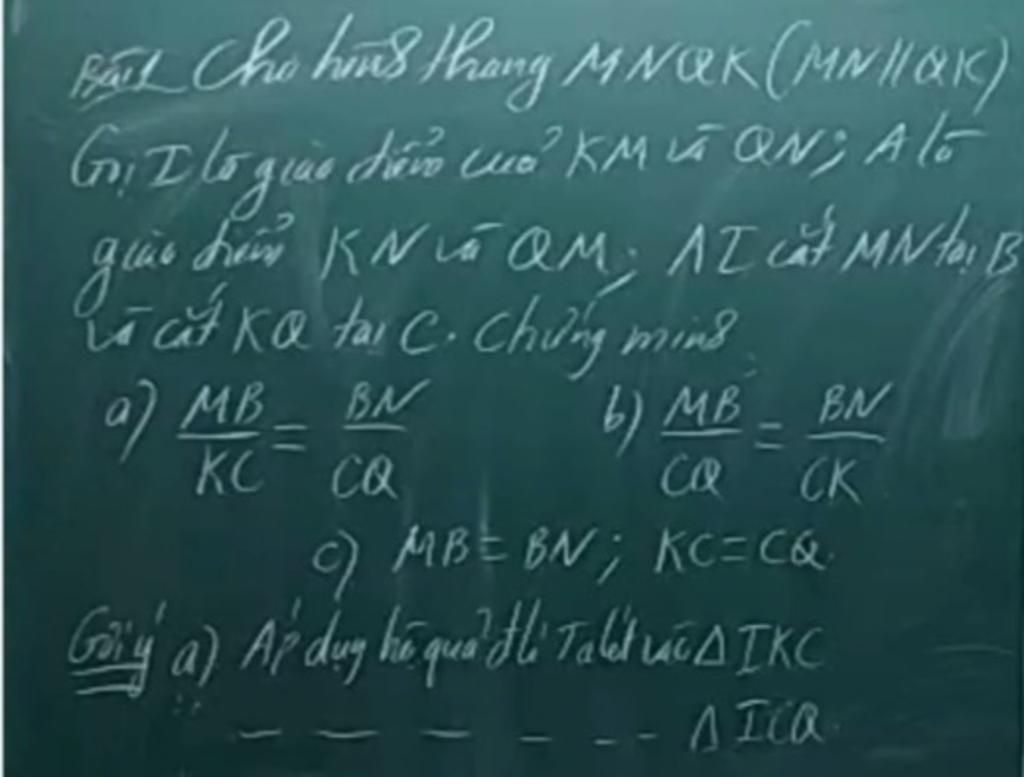 Bài 1 Cho hình thang MNQK (MN//QK)
Gọi I là giao điểm của KM và QN; A là
giao điểm KN và QM; AI cắt MN tại B
và cắt KQ tại C. Chứng minh
a) MB/KC = BN/CQ b) MB/CQ = BN/CK
c) MB = BN; KC = CQ.
Gợi ý a) Áp dụng hệ quả đl Talét vào Δ IKC
_ _ _ _ _ _ _ Δ ICQ.